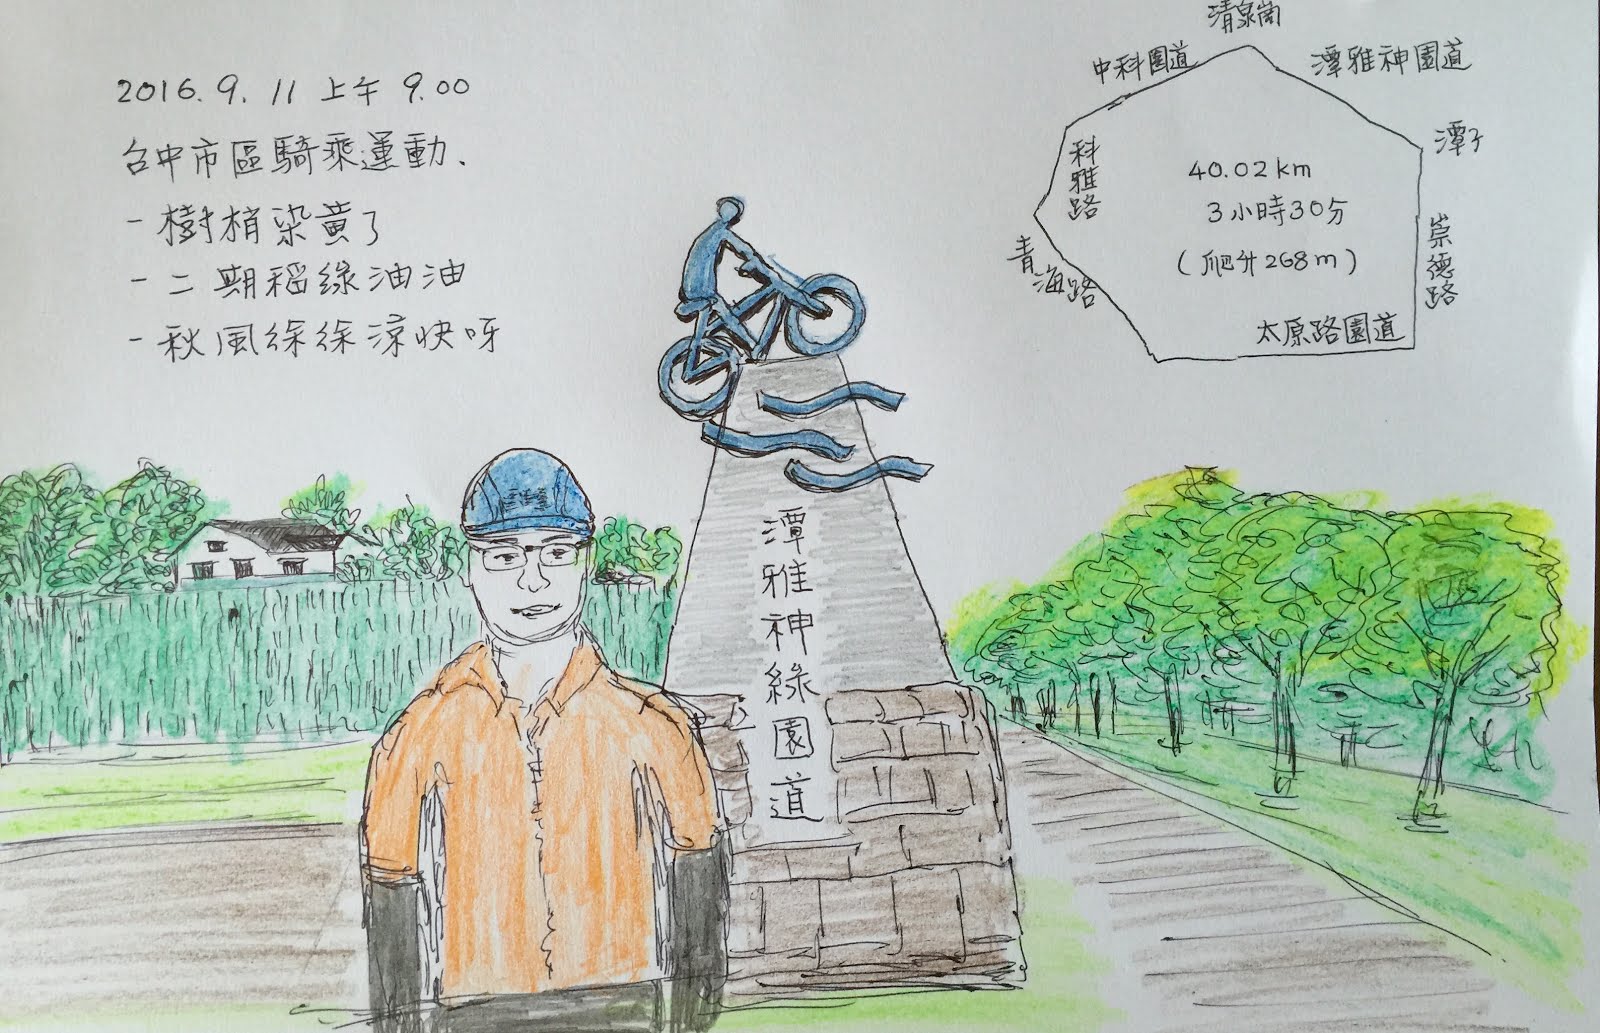 2016.9.11 上午 9.00
台中市區騎乘運動、
-樹梢染黃了
-二期稻綠油油
-秋風徐徐涼快呀
清泉崗
中科園道
潭雅神園道
潭子
科雅路
40.02 km
3小時30分
(爬升268m)
青海路
崇德路
太原路園道
潭雅神綠園道